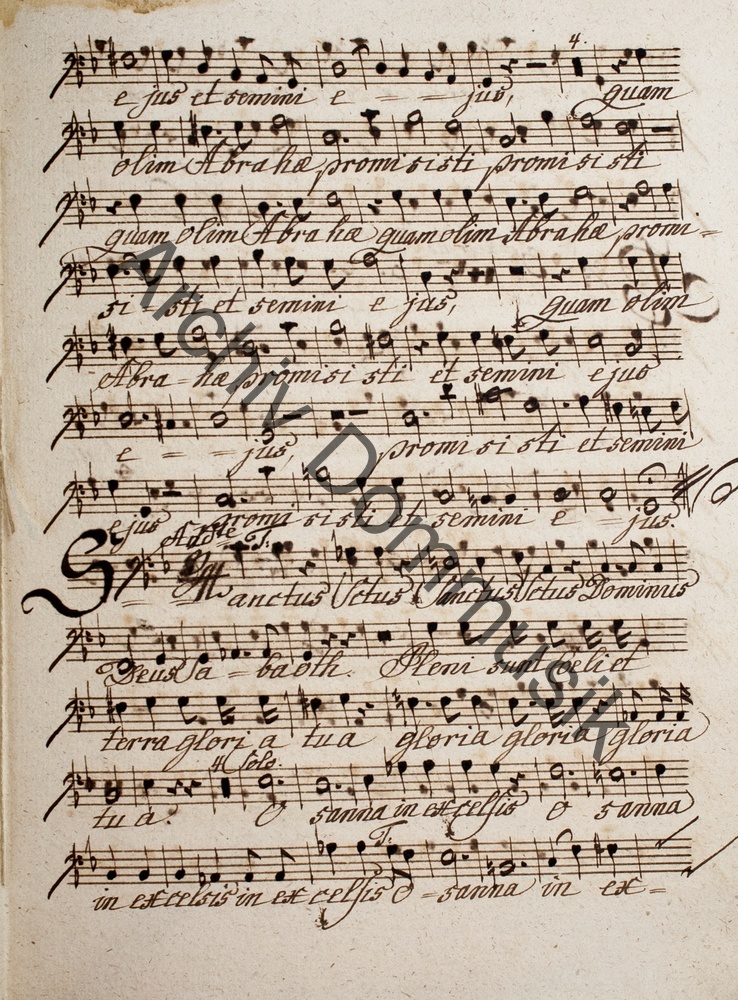 4.
e jus et semini e = = = jus, quam
olim Abrahæ promisisti promisisti
quam olim Abrahæ quam olim Abrahæ promi =
si = sti et semini e jus, quam olim
Abra = hæ promisisti et semini ejus
e = = = jus, promisisti et semini
ejus promisisti et semini e = jus.
T.
Sanctus Sctus Sanctus Sctus Dominus
Deus Sa = baoth. Pleni sunt coeli et
terra gloria tua gloria gloria gloria
4 Solo.
tua. O sanna in excelsis O sanna
T.
in excelsis in excelsis O = sanna in ex =
Archiv Dommusik